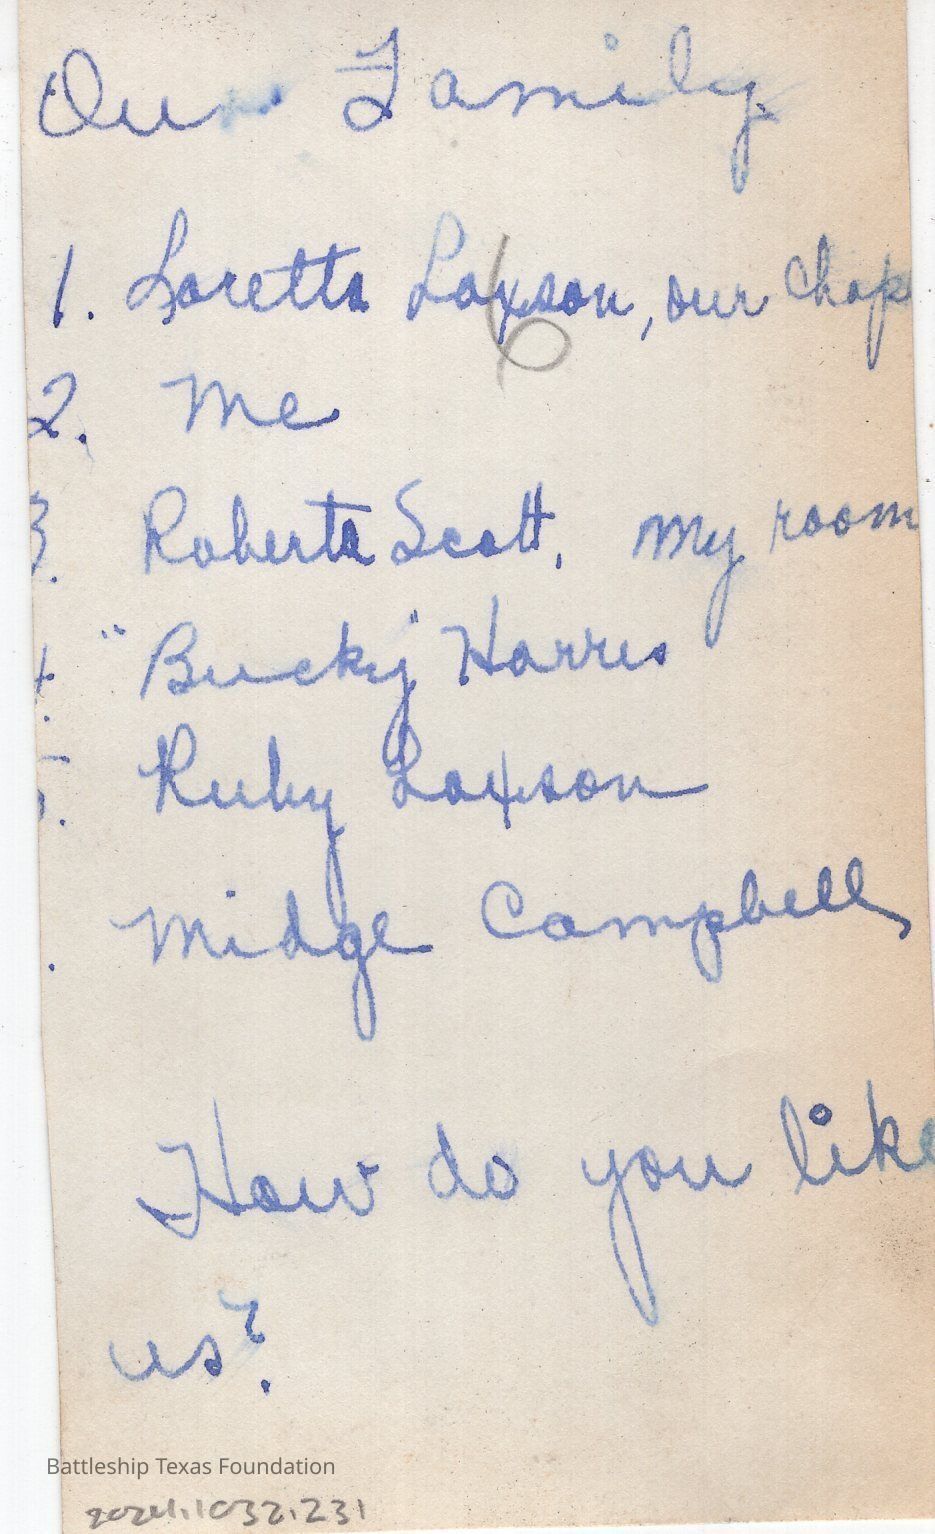 Our Family
1. Loretta Laxson, our chape
6
2. Me
3. Roberta Scott, My room
4. "Bucky" Harris
5. Ruby Laxson
. Midge Campbell
How do you like
us?
Battleship Texas Foundation
2024.1032.231